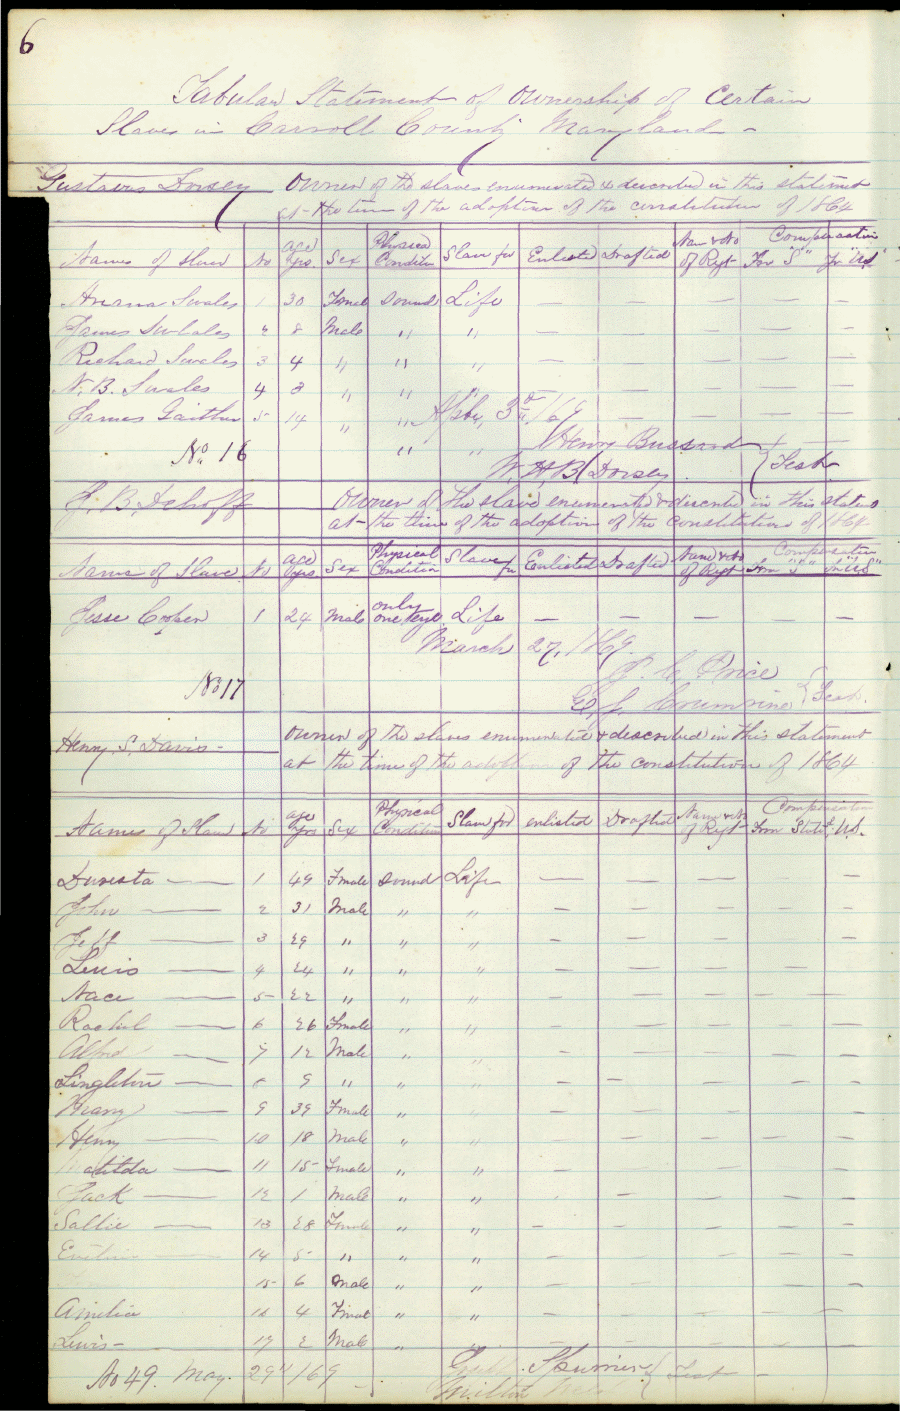 6
Tabular Statement of Ownership of Certain
Slaves in Carroll County Maryland -
Gustavus Dorsey Owner of the slaves enumerated & described in this statement
at the time of the adoption of the constitution of 1864
Names of Slaves No age yrs. Sex Physical Condition Slave for Enlisted Drafted Name & No of Regt Compensation From "S" Fr "US"
Ariana Swales 1 30 Female Sound Life — — — —
James Swales 2 8 Male " " — — — —
Richard Swales 3 4 " " " — — — —
N. B. Swales 4 3 " " — — —
James Gaither 5 14 " " — — — —
No. 16 " "
Henry Bussard
W. H. B. Dorsey } Test
Owner of the slave enumerated & described in this statemt
at the time of the adoption of the constitution of 1864
Names of Slave No age yrs Sex Physical Condition Slave for Enlisted Drafted Name & No of Regt Compensation From "S" Fr "US"
Jesse Cooper 1 24 Male only one eye Life — — — — —
March 27, 1869.
No 17
Price
Crumrine } Test.
Henry S. Davis - Owner of the slaves enumerated & described in this statement
at the time of the adoption of the constitution of 1864
Names of Slaves No age yrs Sex Physical Condition Slave for enlisted Drafted Name & No of Regt Compensation From State U.S.
1 49 Female Sound Life — — — — —
John — 2 31 Male " " — — — — —
Jeff — 3 29 " " " — — — — —
Lewis — 4 24 " " " — — — — —
Nace — 5 22 " " " — — — — —
Rachel — 6 26 Female " " — — — — —
Alfred — 7 12 Male " " — — — — —
Singleton — 8 9 " " " — — — — —
9 39 Female " " — — — — —
Henry — 10 18 Male " " — — — — —
Matilda — 11 15 Female " " — — — — —
Jack — 12 1 Male " " — — — — —
Sallie — 13 28 Female " " — — — — —
14 5 " " " — — — — —
15 6 Male " " — — — — —
Amelia 16 4 Female " " — — — — —
Lewis - 17 2 Male " " — — — — —
No 49. May. 29" 169 } Test -
Milton